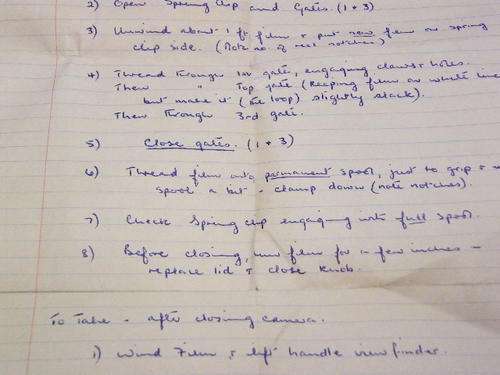 2) Open Spring Clip and Gates. (1 + 3)
3) Unwind about 1 ft film & put new film on spring
clip side. (Note no. of reel notches)
4) Thread through 1st gate, engaging claws & holes.
Then " Top gate (keeping film on white line
but make it (the loop) slightly slack).
Then through 3rd gate.
5) Close gates. (1 + 3)
6) Thread film onto permanent spool, just to grip &
spool a bit - clamp down (note notches).
7) Check Spring clip engaging with full spool.
8) Before closing, run film for a few inches -
replace lid & close knob.
To Take - after closing camera.
1) Wind Film & left handle viewfinder.